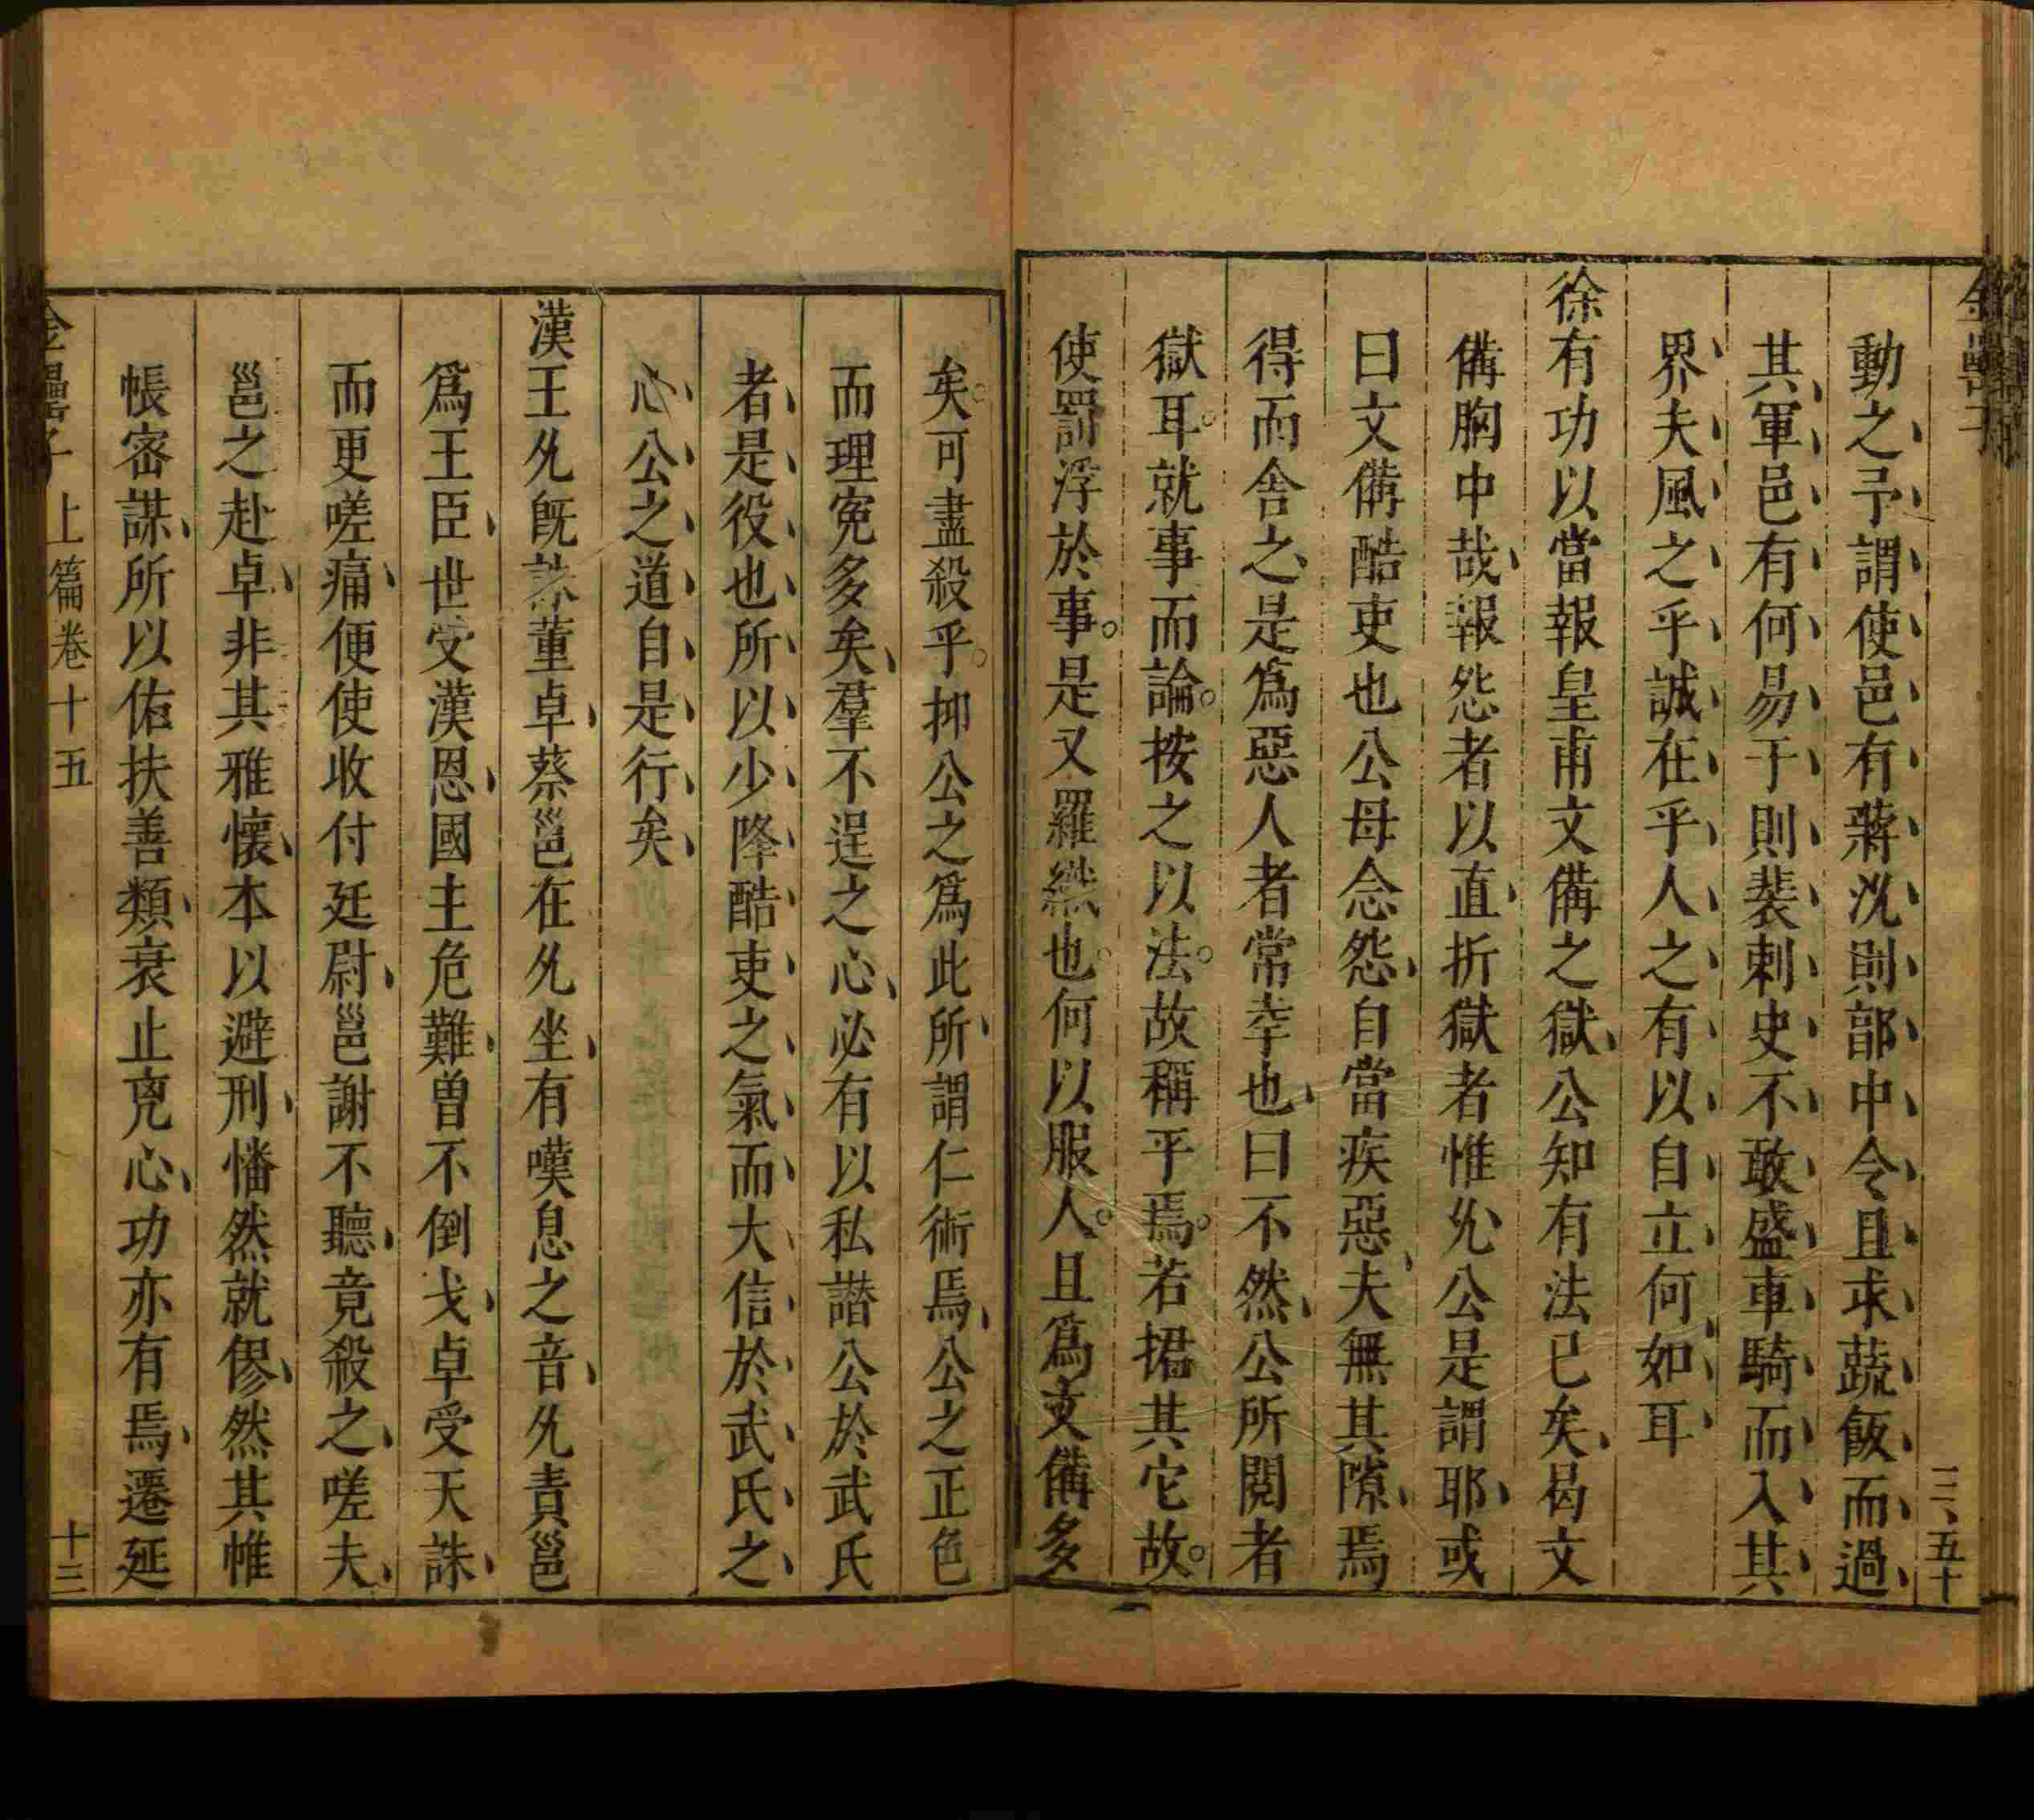 動之予謂使邑有蔣沇則部中令且求蔬飯而過
其軍邑有何易于則裴刺史不敢盛車騎而入其
界夫風之乎誠在乎人之有以自立何如耳
徐有功以當報皇甫文備之獄公知有法已矣曷文
備胸中哉報怨者以直折獄者惟允公是謂耶或
曰文備酷吏也公毋念怨自當疾惡夫無其隙焉
得而舍之是爲惡人者常幸也曰不然公所閱者
獄耳就事而論按之以法故稱平焉若捃其它故
使罰浮於事是又羅織也何以服人且爲文備多
矣可盡殺乎抑公之爲此所謂仁術焉公之正色
而理寃多矣羣不逞之心必有以私譖公於武氏
者是役也所以少降酷吏之氣而大信於武氏之
心公之道自是行矣
漢王允旣誅董卓蔡邕在允坐有嘆息之音允責邕
爲王臣世受漢恩國主危難曾不倒戈卓受天誅
而更嗟痛便使收付廷尉邕謝不聽竟殺之嗟夫
邕之赴卓非其雅懷本以避刑憣然就僇然其帷
帳密謀所以佑扶善類衰止兇心功亦有焉遷延
金罍子 上篇卷十五 十三